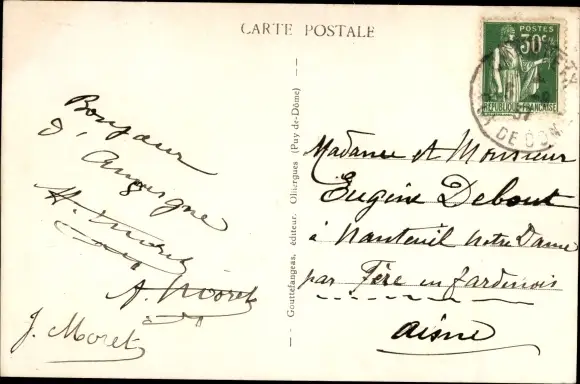 CARTE POSTALE
Bonjour
d'Auvergne
A. Moret
J. Moret
Gouttefangeas, éditeur. Olliergues (Puy-de-Dôme)
POSTES
30c
RÉPUBLIQUE FRANÇAISE
DE DOM
Madame et Monsieur
Eugène Debout
à Nanteuil Notre Dame
par Fère en Tardenois
Aisne